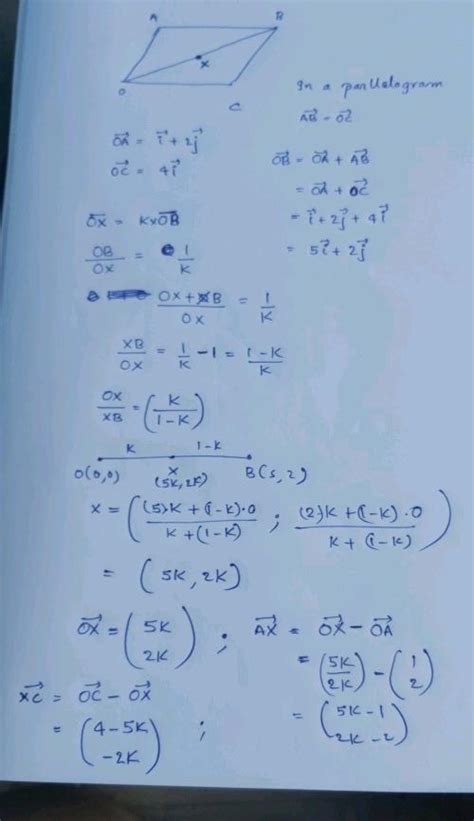 A B
X
O
C
In a parllelogram
AB⃗ = OC⃗
OA⃗ = i⃗ + 2j⃗
OC⃗ = 4i⃗
OB⃗ = OA⃗ + AB⃗
= OA⃗ + OC⃗
= i⃗ + 2j⃗ + 4i⃗
= 5i⃗ + 2j⃗
OX⃗ = K×OB⃗
OB/OX = 1/K
(OX + XB)/OX = 1/K
XB/OX = 1/K - 1 = (1-K)/K
OX/XB = (K/(1-K))
K 1-K
O(0,0) X B(5,2)
(5K,2K)
X = ( ((5)K + (1-K)·0)/(K + (1-K)) ; ((2)K + (1-K)·0)/(K + (1-K)) )
= (5K, 2K)
OX⃗ = (5K 2K) ; AX⃗ = OX⃗ - OA⃗
= (5K/2K) - (1 2)
= (5K-1 2K-2)
XC⃗ = OC⃗ - OX⃗
= (4-5K -2K) ;